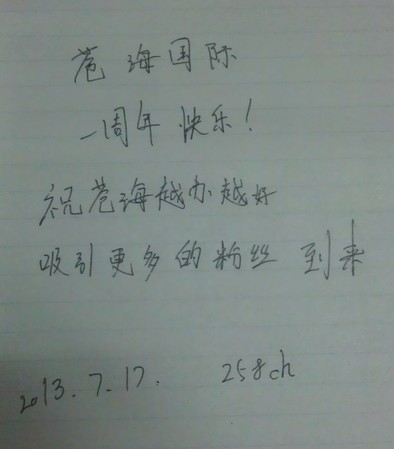 苍海国际
一周年快乐!
祝苍海越办越好
吸引更多的粉丝到来
2013.7.17. 258ch